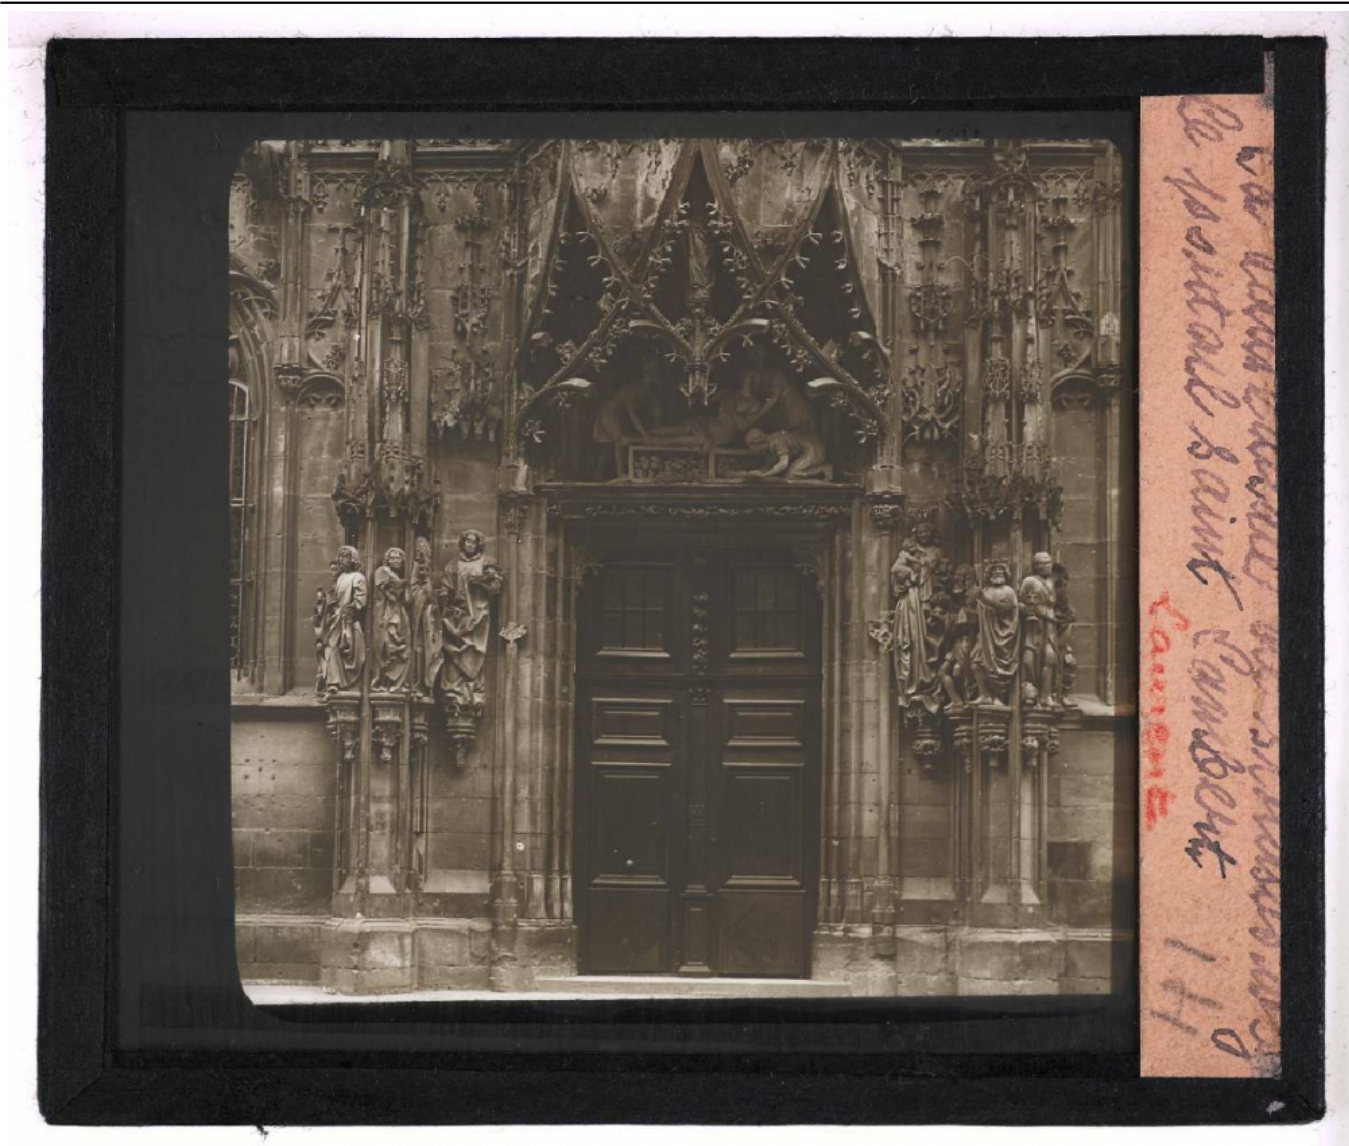 La cathédrale de Strasbourg
Le portail Saint Lambert
Laurent